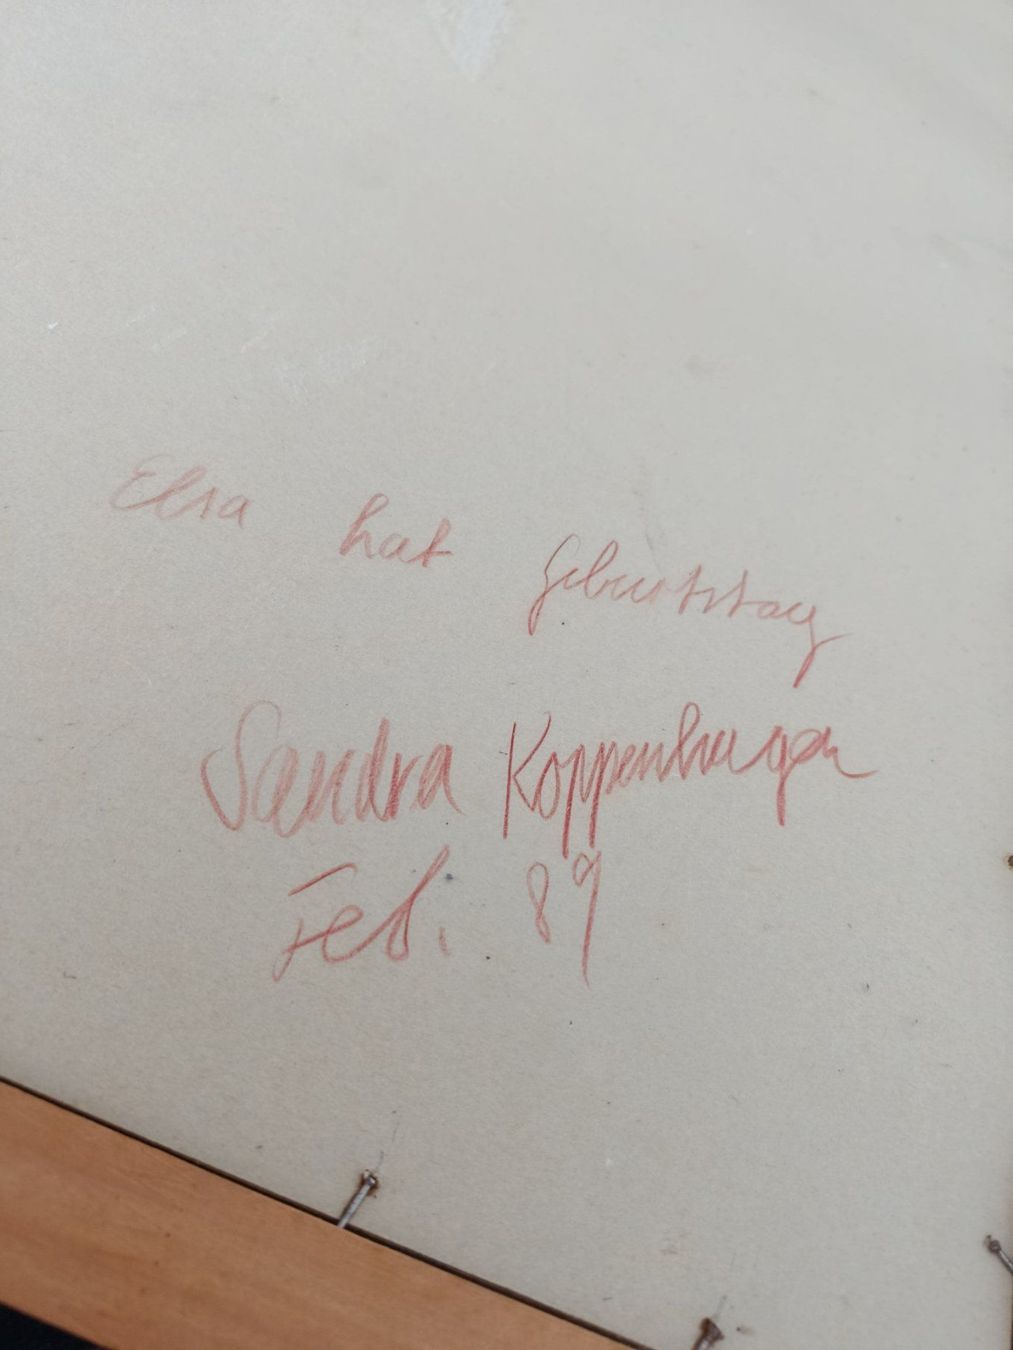 Elsa hat Geburtstag
Sandra Koppenhagen
Feb. 89